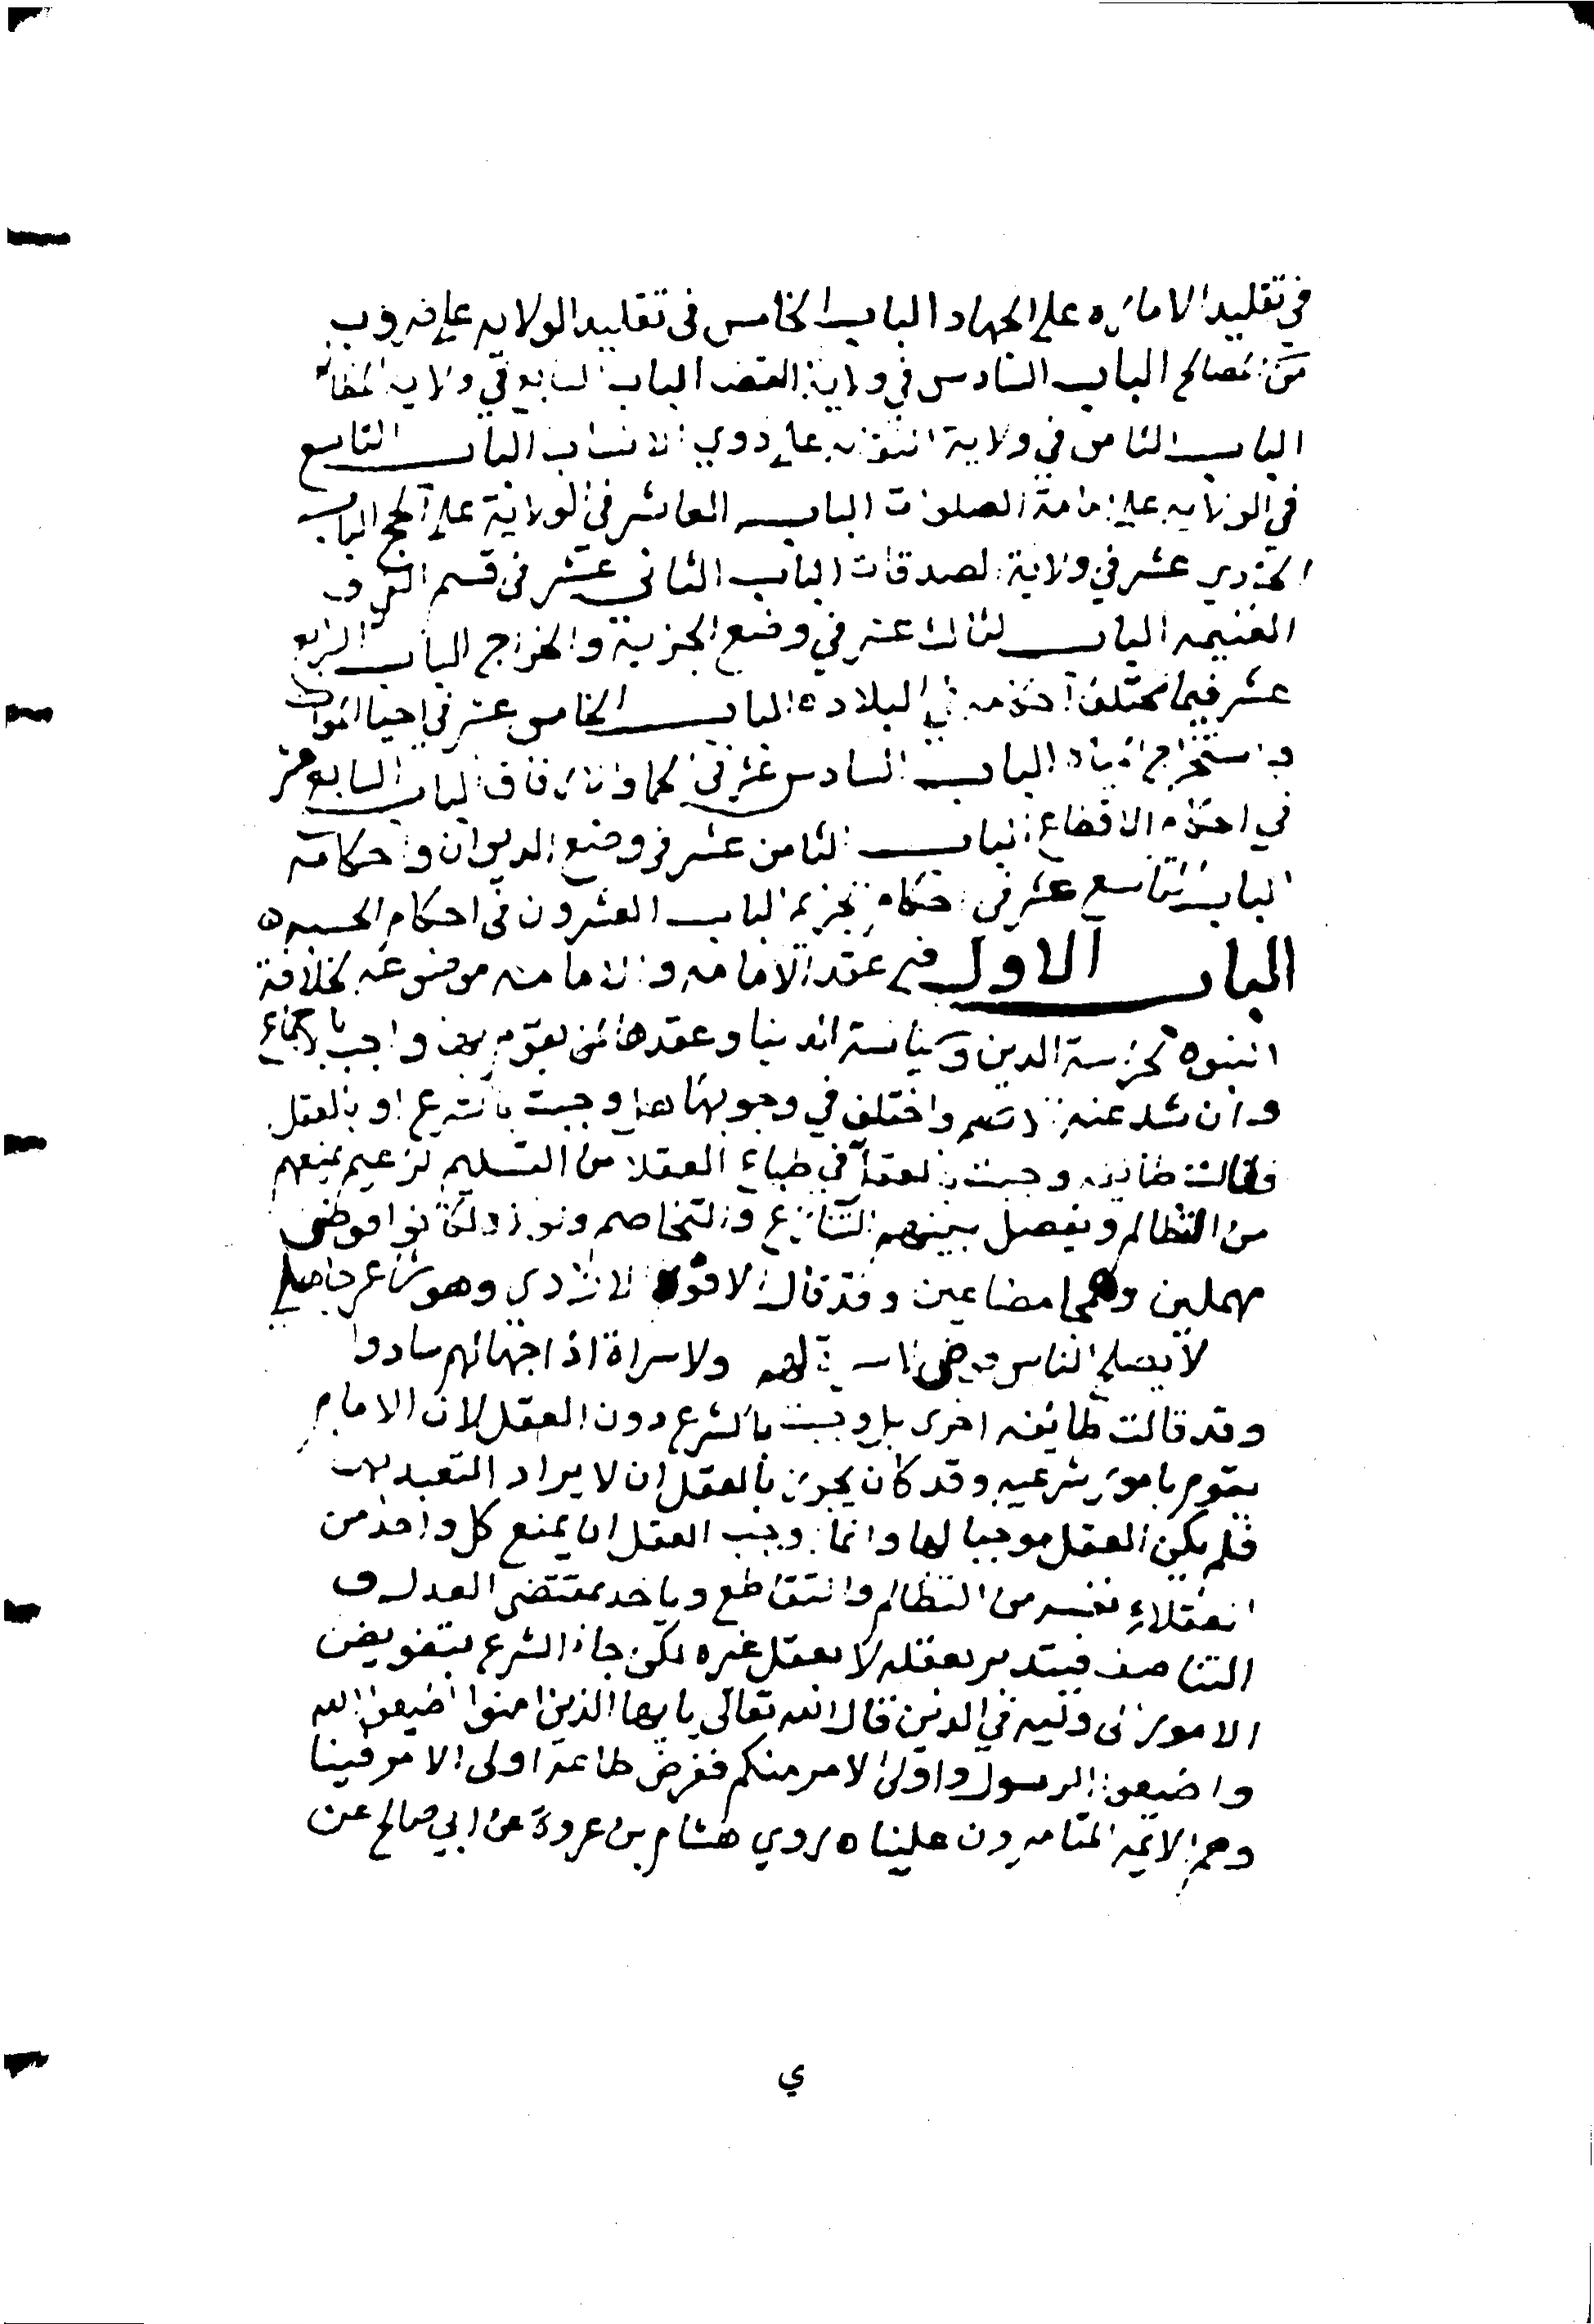 في تقليد الامارة على الجهاد الباب الخامس في تقليد الولايه على ضروب
من المصالح الباب السادس في ولاية القضا الباب السابع في ولاية المظالم
الباب الثامن في ولاية النقابة على ذوي الانساب الباب التاسع
في الولايه على امامة الصلوات الباب العاشر في الولاية على الحج الباب
الحادي عشر في ولاية الصدقات الباب الثاني عشر في قسم الفي و
الغنيمه الباب الثالث عشر في وضع الجزية والخراج الباب الرابع
عشر فيما تختلف احكامه في البلاد ه الباب الخامس عشر في احيا الموات
واستخراج المياه الباب السادس عشر في الحما والارفاق الباب السابع عشر
في احكام الاقطاع الباب الثامن عشر في وضع الديوان واحكامه
الباب التاسع عشر في احكام الجرايم الباب العشرون في احكام الحسبه ه
الباب الاول في عقد الامامه والامامه موضوعه لخلافة
النبوه في حراسة الدين وسياسة الدنيا وعقدها لمن يقوم بها واجب بالاجماع
وان شذ عنهم الاصم واختلف في وجوبها هل وجبت بالشرع او بالعقل
فقالت طايفه وجبت بالعقل لما في طباع العقلا من التسليم لزعيم يمنعهم
من التظالم ويفصل بينهم في التنازع والتخاصم ولولا ذلك لكانوا فوضى
مهملين وهمجا مضاعين وقد قال الافوه الاودي وهو شاعر جاهلي
لا يصلح الناس فوضى لا سراة لهم ولا سراة اذا جهالهم سادوا
وقد قالت طايفه اخرى بل وجبت بالشرع دون العقل لان الامام
يقوم بامور شرعيه وقد كان يجوز بالعقل ان لا يراد التعبد بها
فلم يكن العقل موجبا لها وانما اوجب العقل ان يمنع كل واحد من
العقلاء نفسه من التظالم والتقاطع وياخد بمقتضى العدل و
التناصف فيتدبر بعقله لا بعقل غيره لكن جاء الشرع بتفويض
الامور الى وليه في الدين قال الله تعالى يايها الذين امنوا اطيعوا الله
واطيعوا الرسول واولي الامر منكم ففرض طاعة اولى الامر فينا
وهم الايمه المتامرون علينا ه روي هشام بن عروة عن ابي صالح عن
ي